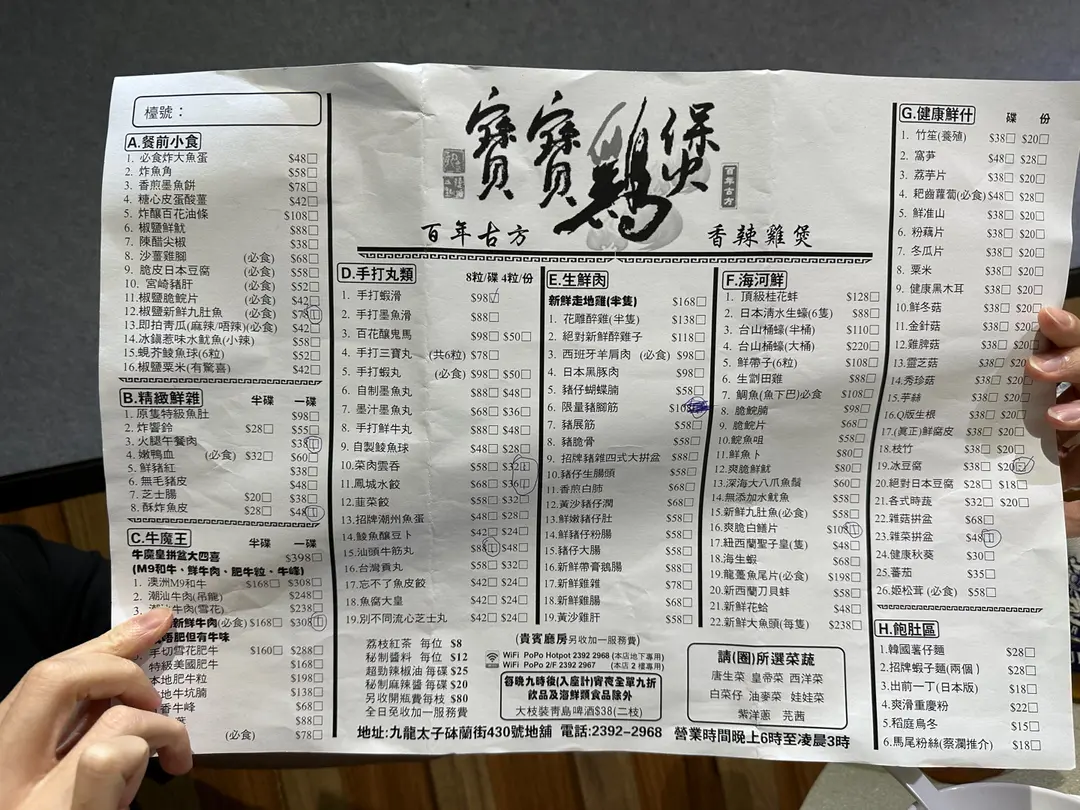 檯號：
寶寶鷄煲
百年古方
百年古方 香辣雞煲
A.餐前小食
1. 必食炸大魚蛋 $48□
2. 炸魚角 $58□
3. 香煎墨魚餅 $78□
4. 糖心皮蛋酸薑 $42□
5. 炸釀百花油條 $108□
6. 椒鹽鮮魷 $88□
7. 陳醋尖椒 $38□
8. 沙薑雞腳 (必食) $68□
9. 脆皮日本豆腐 (必食) $58□
10. 宮崎豬肝 (必食) $52□
11.椒鹽脆皖片 (必食) $42□
12.椒鹽新鮮九肚魚 (必食) $78□
13.即拍靑瓜(麻辣/唔辣)(必食) $42□
14.冰鎮惹味水魷魚(小辣) $58□
15.蜆芥鯪魚球(6粒) $52□
16.椒鹽粟米(有驚喜) $42□
B.精緻鮮雜 半碟 一碟
1. 原隻特級魚肚 $98□
2. 炸響鈴 $28□ $55□
3. 火腿午餐肉 $38□
4. 嫩鴨血 (必食) $32□ $60□
5. 鮮豬紅 $38□
6. 無毛豬皮 $48□
7. 芝士腸 $20□ $38□
8. 酥炸魚皮 $28□ $48□
C.牛魔王 半碟 一碟
牛魔皇拼盆大四喜 $398□
(M9和牛、鮮牛肉、肥牛粒、牛峰)
1. 澳洲M9和牛 $168□ $308□
2. 潮汕牛肉(吊龍) $248□
3. 潮汕牛肉(雪花) $238□
新鮮牛肉(必食) $168□ $308□
唔肥但有牛味
手切雪花肥牛 $160□ $288□
特級美國肥牛 $168□
本地肥牛粒 $198□
本地牛坑腩 $138□
香牛峰 $68□
$88□
(必食) $78□
D.手打丸類 8粒/碟 4粒/份
1. 手打蝦滑 $98□
2. 手打墨魚滑 $88□
3. 百花釀鬼馬 $98□ $50□
4. 手打三寶丸 (共6粒) $78□
5. 手打蝦丸 (必食) $98□ $50□
6. 自制墨魚丸 $88□ $48□
7. 墨汁墨魚丸 $68□ $36□
8. 手打鮮牛丸 $88□ $48□
9. 自製鯪魚球 $48□ $28□
10.菜肉雲吞 $58□ $32□
11.鳳城水餃 $68□ $36□
12.韮菜餃 $58□ $32□
13.招牌潮州魚蛋 $48□ $28□
14.鯪魚釀豆卜 $42□ $24□
15.汕頭牛筋丸 $88□ $48□
16.台灣貢丸 $58□ $32□
17.忘不了魚皮餃 $42□ $24□
18.魚窩大皇 $42□ $24□
19.別不同流心芝士丸 $42□ $24□
E.生鮮肉
新鮮走地雞(半隻) $168□
1. 花雕醉雞(半隻) $138□
2. 絕對新鮮醉雞子 $118□
3. 西班牙羊肩肉 (必食) $98□
4. 日本黑豚肉 $98□
5. 豬仔蝴蝶腩 $58□
6. 限量豬腳筋 $108□
7. 豬展筋 $58□
8. 豬脆骨 $58□
9. 招牌豬雜四式大拼盆 $88□
10.豬仔生腸頭 $58□
11.香煎白肺 $68□
12.黃沙豬仔潤 $68□
13.鮮嫩豬仔肚 $58□
14.鮮豬仔粉腸 $58□
15.豬仔大腸 $58□
16.新鮮帶膏鵝腸 $88□
17.新鮮雞雜 $78□
18.新鮮雞腸 $68□
19.黃沙雞肝 $58□
F.海河鮮
1. 頂級桂花蚌 $128□
2. 日本淸水生蠔(6隻) $88□
3. 台山桶蠔(半桶) $110□
4. 台山桶蠔(大桶) $220□
5. 鮮帶子(6粒) $108□
6. 生劏田雞 $88□
7. 鯛魚(魚下巴)必食 $108□
8. 脆鯇腩 $98□
9. 脆鯇片 $68□
10.鯇魚咀 $58□
11.鮮魚卜 $80□
12.爽脆鮮魷 $80□
13.深海大八爪魚鬚 $60□
14.無添加水魷魚 $58□
15.新鮮九肚魚(必食) $58□
16.爽脆白鱔片 $108□
17.紐西蘭聖子皇(隻) $48□
18.海生蝦 $68□
19.龍躉魚尾片(必食) $198□
20.新西蘭刀貝蚌 $58□
21.新鮮花蛤 $48□
22.新鮮大魚頭(每隻) $238□
G.健康鮮什 碟 份
1. 竹笙(養殖) $38□ $20□
2. 窩笋 $48□ $28□
3. 荔芋片 $38□ $20□
4. 耙齒蘿蔔(必食) $48□ $28□
5. 鮮准山 $38□ $20□
6. 粉藕片 $38□ $20□
7. 冬瓜片 $38□ $20□
8. 粟米 $38□ $20□
9. 健康黑木耳 $38□ $20□
10.鮮冬菇 $38□ $20□
11.金針菇 $38□ $20□
12.雞脾菇 $38□ $20□
13.靈芝菇 $38□ $20□
14.秀珍菇 $38□ $20□
15.芋絲 $38□ $20□
16.Q版生根 $38□ $20□
17.(眞正)鮮腐皮 $38□ $20□
18.枝竹 $38□ $20□
19.冰豆窩 $38□ $20□
20.絕對日本豆腐 $28□ $18□
21.各式時蔬 $32□ $20□
22.雜菇拼盆 $68□
23.雜菜拼盆 $48□
24.健康秋葵 $30□
25.蕃茄 $35□
26.姬松茸 (必食) $58□
H.飽肚區
1.韓國薯仔麵 $28□
2.招牌蝦子麵(兩個) $28□
3.出前一丁(日本版) $18□
4.爽滑重慶粉 $22□
5.稻庭烏冬 $15□
6.馬尾粉絲(蔡瀾推介) $18□
荔枝紅茶 每位 $8
秘制醬料 每位 $12
超勁辣椒油 每碟 $25
秘制麻辣醬 每碟 $20
另收開瓶費每枝 $80
全日免收加一服務費
(貴賓廳房另收加一服務費)
WiFi PoPo Hotpot 2392 2968 (本店地下專用)
WiFi PoPo 2/F 2392 2967 (本店2樓專用)
每晚九時後(入座計)宵夜全單九折
飲品及海鮮類食品除外
大枝裝靑島啤酒$38(二枝)
請(圈)所選菜蔬
唐生菜 皇帝菜 西洋菜
白菜仔 油麥菜 娃娃菜
紫洋蔥 芫茜
地址:九龍太子砵蘭街430號地舖 電話:2392-2968 營業時間晚上6時至凌晨3時